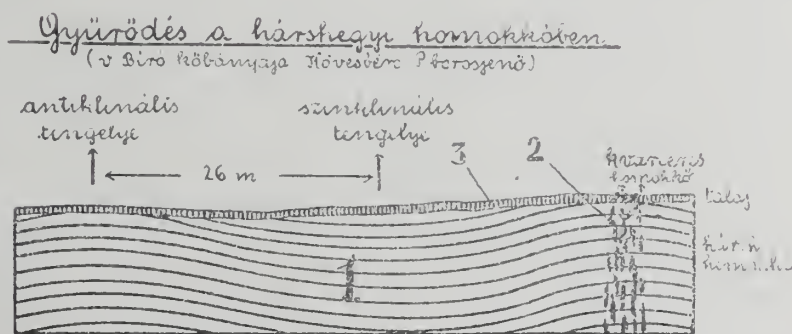 Gyürődés a hárshegyi homokkőben
(v Biró kőbányája Kövesbérc Pborosjenő)
antiklinális
tengelye
szinklinális
tengelye
26 m
3
2
kvarceres
homokkő
talaj
hárs.h